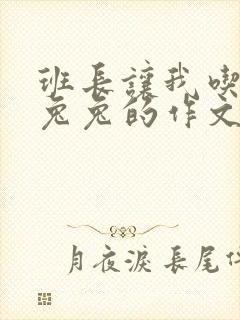 班長讓我喫
兔兔的作文
月夜淚長尾